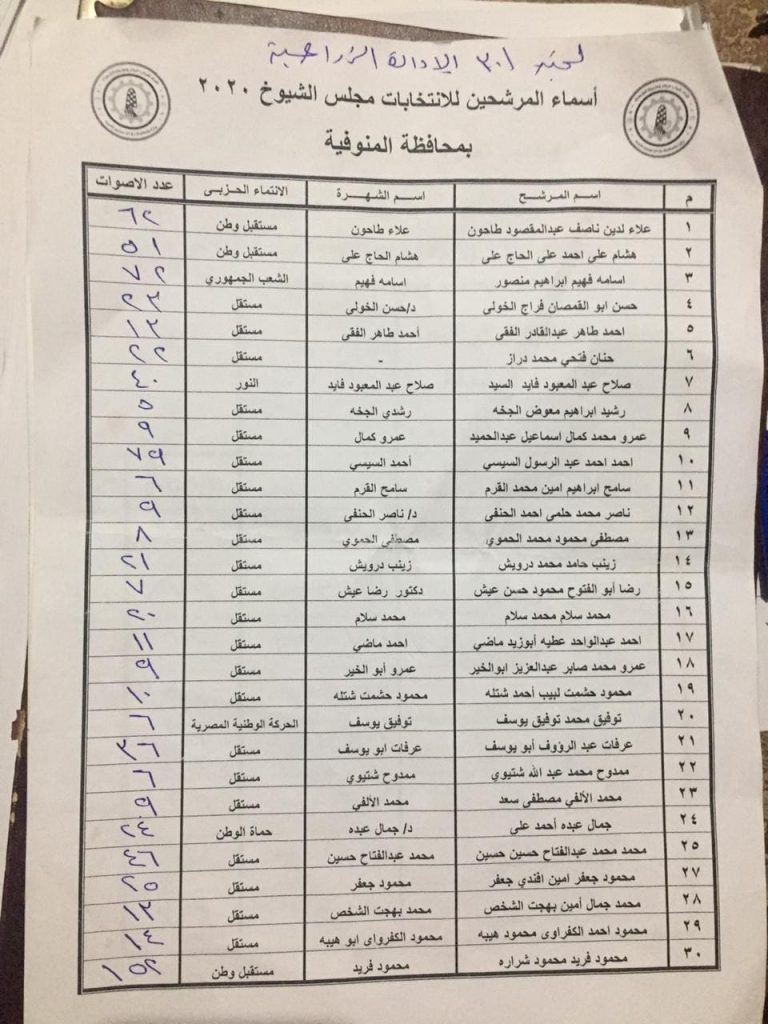 لجنة ٣٠١ الإدارة الزراعية
أسماء المرشحين للانتخابات مجلس الشيوخ ٢٠٢٠
بمحافظة المنوفية
م اسم المرشح اسم الشهرة الانتماء الحزبى عدد الاصوات
١ علاء لدين ناصف عبدالمقصود طاحون علاء طاحون مستقبل وطن ٦٢
٢ هشام على احمد على الحاج على هشام الحاج على مستقبل وطن ٥١
٣ اسامه فهيم ابراهيم منصور اسامه فهيم الشعب الجمهوري ٧٢
٤ حسن ابو القمصان فراج الخولى د/حسن الخولى مستقل ٢٣
٥ احمد طاهر عبدالقادر الفقى أحمد طاهر الفقى مستقل ١٣
٦ حنان فتحي محمد دراز - مستقل ٢٢
٧ صلاح عبد المعبود فايد السيد صلاح عبد المعبود فايد النور ٤٠
٨ رشيد ابراهيم معوض الجخه رشدي الجخه مستقل ٥
٩ عمرو محمد كمال اسماعيل عبدالحميد عمرو كمال مستقل ٩
١٠ احمد احمد عبد الرسول السيسي أحمد السيسي مستقل ٧٩
١١ سامح ابراهيم امين محمد القرم سامح القرم مستقل ٦
١٢ ناصر محمد حلمى احمد الحنفى د/ ناصر الحنفى مستقل ٩
١٣ مصطفى محمود محمد الحموي مصطفى الحموي مستقل ٨
١٤ زينب حامد محمد درويش زينب درويش مستقل ٢١
١٥ رضا أبو الفتوح محمود حسن عيش دكتور رضا عيش مستقل ٧
١٦ محمد سلام محمد سلام محمد سلام مستقل ٢٠
١٧ احمد عبدالواحد عطيه أبوزيد ماضي احمد ماضي مستقل ١١
١٨ عمرو محمد صابر عبدالعزيز ابوالخير عمرو أبو الخير مستقل ٩
١٩ محمود حشمت لبيب أحمد شتله محمود حشمت شتله مستقل ١٠
٢٠ توفيق محمد توفيق يوسف توفيق يوسف الحركة الوطنية المصرية ٦
٢١ عرفات عبد الرؤوف أبو يوسف عرفات ابو يوسف مستقل ٣٦
٢٢ ممدوح محمد عبد الله شتيوي ممدوح شتيوي مستقل ٦
٢٣ محمد الألفي مصطفى سعد محمد الألفي مستقل ٩
٢٤ جمال عبده أحمد على د/ جمال عبده حماة الوطن ٢٣
٢٥ محمد محمد عبدالفتاح حسين حسين محمد عبدالفتاح حسين مستقل ٤٦
٢٧ محمود جعفر امين افندي جعفر محمود جعفر مستقل ٢٥
٢٨ محمد جمال أمين بهجت الشخص محمد بهجت الشخص مستقل ١٢
٢٩ محمود احمد الكفراوى محمود هيبه محمود الكفرواى ابو هيبه مستقل ١٤
٣٠ محمود فريد محمود شراره محمود فريد مستقبل وطن